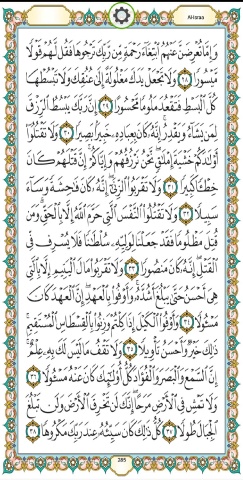 Al-Israa
وَإِمَّا تُعْرِضَنَّ عَنْهُمُ ٱبْتِغَآءَ رَحْمَةٍ مِّن رَّبِّكَ تَرْجُوهَا فَقُل لَّهُمْ قَوْلًا
مَّيْسُورًا ٢٨ وَلَا تَجْعَلْ يَدَكَ مَغْلُولَةً إِلَىٰ عُنُقِكَ وَلَا تَبْسُطْهَا
كُلَّ ٱلْبَسْطِ فَتَقْعُدَ مَلُومًا مَّحْسُورًا ٢٩ إِنَّ رَبَّكَ يَبْسُطُ ٱلرِّزْقَ
لِمَن يَشَآءُ وَيَقْدِرُ إِنَّهُۥ كَانَ بِعِبَادِهِۦ خَبِيرًۢا بَصِيرًا ٣٠ وَلَا تَقْتُلُوٓا۟
أَوْلَـٰدَكُمْ خَشْيَةَ إِمْلَـٰقٍ نَّحْنُ نَرْزُقُهُمْ وَإِيَّاكُمْ إِنَّ قَتْلَهُمْ كَانَ
خِطْـًٔا كَبِيرًا ٣١ وَلَا تَقْرَبُوا۟ ٱلزِّنَىٰٓ إِنَّهُۥ كَانَ فَـٰحِشَةً وَسَآءَ
سَبِيلًا ٣٢ وَلَا تَقْتُلُوا۟ ٱلنَّفْسَ ٱلَّتِى حَرَّمَ ٱللَّهُ إِلَّا بِٱلْحَقِّ وَمَن
قُتِلَ مَظْلُومًا فَقَدْ جَعَلْنَا لِوَلِيِّهِۦ سُلْطَـٰنًا فَلَا يُسْرِف فِّى
ٱلْقَتْلِ إِنَّهُۥ كَانَ مَنصُورًا ٣٣ وَلَا تَقْرَبُوا۟ مَالَ ٱلْيَتِيمِ إِلَّا بِٱلَّتِى
هِىَ أَحْسَنُ حَتَّىٰ يَبْلُغَ أَشُدَّهُۥ وَأَوْفُوا۟ بِٱلْعَهْدِ إِنَّ ٱلْعَهْدَ كَانَ
مَسْـُٔولًا ٣٤ وَأَوْفُوا۟ ٱلْكَيْلَ إِذَا كِلْتُمْ وَزِنُوا۟ بِٱلْقِسْطَاسِ ٱلْمُسْتَقِيمِ
ذَٰلِكَ خَيْرٌ وَأَحْسَنُ تَأْوِيلًا ٣٥ وَلَا تَقْفُ مَا لَيْسَ لَكَ بِهِۦ عِلْمٌ
إِنَّ ٱلسَّمْعَ وَٱلْبَصَرَ وَٱلْفُؤَادَ كُلُّ أُو۟لَـٰٓئِكَ كَانَ عَنْهُ مَسْـُٔولًا ٣٦
وَلَا تَمْشِ فِى ٱلْأَرْضِ مَرَحًا إِنَّكَ لَن تَخْرِقَ ٱلْأَرْضَ وَلَن تَبْلُغَ
ٱلْجِبَالَ طُولًا ٣٧ كُلُّ ذَٰلِكَ كَانَ سَيِّئُهُۥ عِندَ رَبِّكَ مَكْرُوهًا ٣٨
285